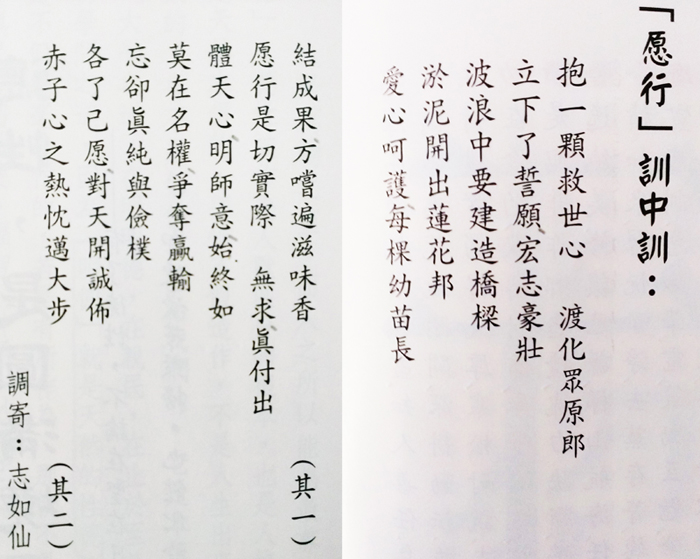 「愿行」訓中訓：
抱一顆救世心　渡化眾原郎
立下了誓願宏志豪壯
波浪中要建造橋樑
淤泥開出蓮花邦
愛心呵護每棵幼苗長
結成果方嚐遍滋味香　（其一）
愿行是切實際　無求眞付出
體天心明師意始終如
莫在名權爭奪贏輸
忘卻眞純與儉樸
各了己愿對天開誠佈
赤子心之熱忱邁大步　（其二）
調寄：志如仙